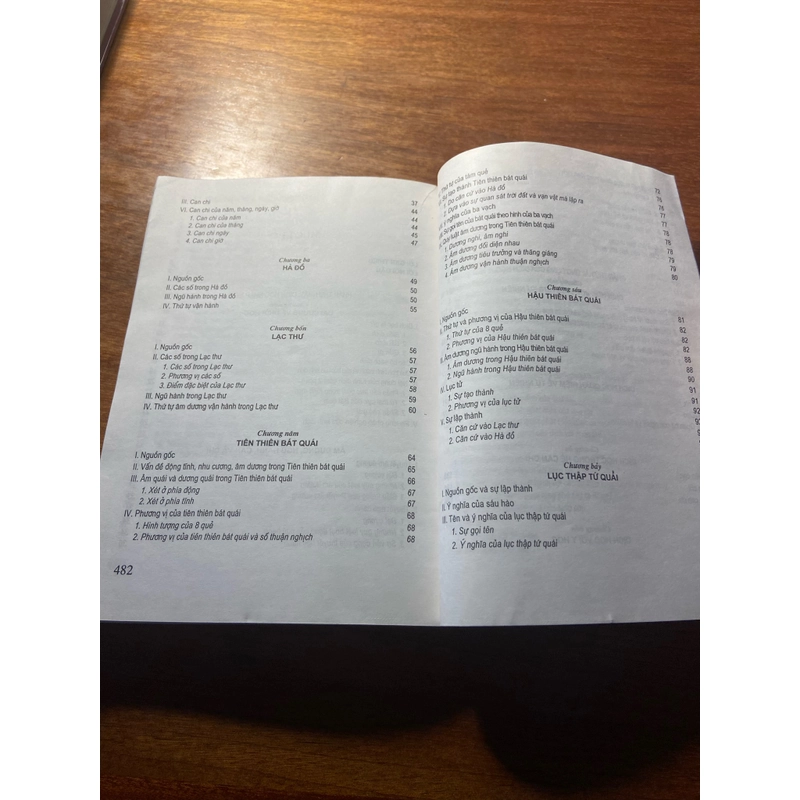 III. Can chi 37
VI. Can chi của năm, tháng, ngày, giờ 44
1. Can chi của năm 44
2. Can chi của tháng 44
3. Can chi ngày 45
4. Can chi giờ 47
Chương ba
HÀ ĐỒ
I. Nguồn gốc 49
II. Các số trong Hà đồ 50
III. Ngũ hành trong Hà đồ 50
IV. Thứ tự vận hành 55
Chương bốn
LẠC THƯ
I. Nguồn gốc 56
II. Các số trong Lạc thư 57
1. Các số trong Lạc thư 57
2. Phương vị các số 57
3. Điểm đặc biệt của Lạc thư 58
III. Ngũ hành trong Lạc thư 59
IV. Thứ tự âm dương vận hành trong Lạc thư 60
Chương năm
TIÊN THIÊN BÁT QUÁI
I. Nguồn gốc 64
II. Vấn đề động tĩnh, nhu cương, âm dương trong Tiên thiên bát quái 65
III. Âm quái và dương quái trong Tiên thiên bát quái 66
1. Xét ở phía động 67
2. Xét ở phía tĩnh 67
IV. Phương vị của tiên thiên bát quái 68
1. Hình tượng của 8 quẻ 68
2. Phương vị của tiên thiên bát quái và số thuận nghịch 68
482
Thứ tự của tám quẻ 72
Sự tạo thành Tiên thiên bát quái 76
1. Do căn cứ vào Hà đồ 76
2. Dựa vào sự quan sát trời đất và vạn vật mà lập ra 76
Ý nghĩa của ba vạch 77
Sự gọi tên của bát quái theo hình của ba vạch 77
Quy luật âm dương trong Tiên thiên bát quái 78
1. Dương nghi, âm nghi 78
2. Âm dương đối diện nhau 78
3. Âm dương tiêu trưởng và thăng giáng 79
4. Âm dương vận hành thuận nghịch 80
Chương sáu
HẬU THIÊN BÁT QUÁI
I. Nguồn gốc 81
II. Thứ tự và phương vị của Hậu thiên bát quái 82
1. Thứ tự của 8 quẻ 82
2. Phương vị của Hậu thiên bát quái 82
Âm dương ngũ hành trong Hậu thiên bát quái 88
1. Âm dương trong Hậu thiên bát quái 88
2. Ngũ hành trong Hậu thiên bát quái 90
IV. Lục tử 91
1. Sự tạo thành 91
2. Phương vị của lục tử 91
V. Sự lập thành 92
1. Căn cứ vào Lạc thư
2. Căn cứ vào Hà đồ
Chương bảy
LỤC THẬP TỨ QUÁI
I. Nguồn gốc và sự lập thành
II. Ý nghĩa của sáu hào
III. Tên và ý nghĩa của lục thập tứ quái
1. Sự gọi tên
2. Ý nghĩa của lục thập tứ quái